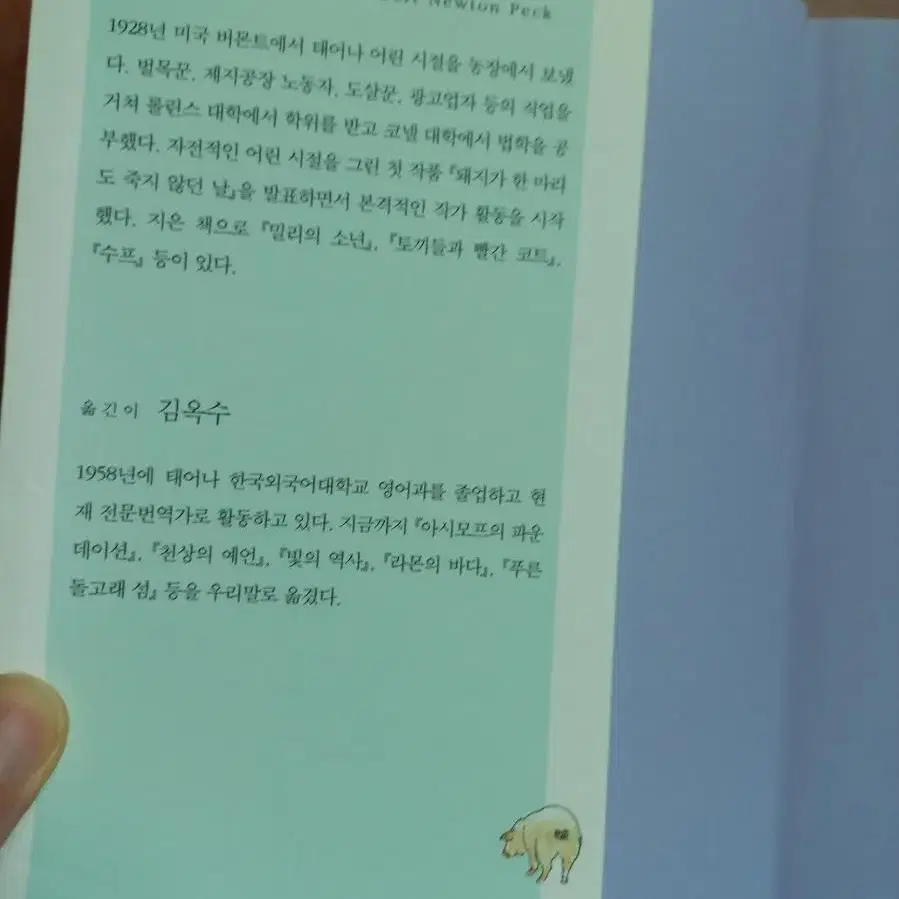 Newton Peck
1928년 미국 버몬트에서 태어나 어린 시절을 농장에서 보냈
다. 벌목꾼, 제지공장 노동자, 도살꾼, 광고업자 등의 직업을
거쳐 롤린스 대학에서 학위를 받고 코넬 대학에서 법학을 공
부했다. 자전적인 어린 시절을 그린 첫 작품 『돼지가 한 마리
도 죽지 않던 날』을 발표하면서 본격적인 작가 활동을 시작
했다. 지은 책으로 『밀리의 소년』, 『토끼들과 빨간 코트』,
『수프』 등이 있다.
옮긴이 김옥수
1958년에 태어나 한국외국어대학교 영어과를 졸업하고 현
재 전문번역가로 활동하고 있다. 지금까지 『아시모프의 파운
데이션』, 『천상의 예언』, 『빛의 역사』, 『라몬의 바다』, 『푸른
돌고래 섬』 등을 우리말로 옮겼다.